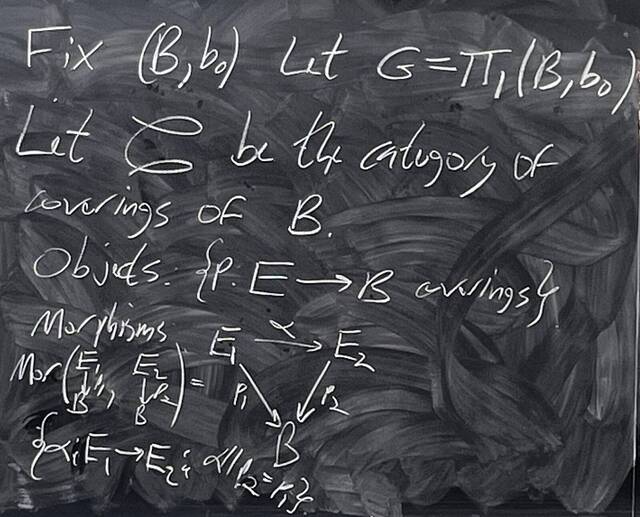 Fix (B, b₀) Let G = π₁(B, b₀)
Let C be the category of
coverings of B.
Objects: {p: E → B coverings}.
Morphisms
E₁ α→ E₂
Mor(E₁ ↓p₁ B, E₂ ↓p₂ B) =
p₁ p₂
B
{α: E₁ → E₂: